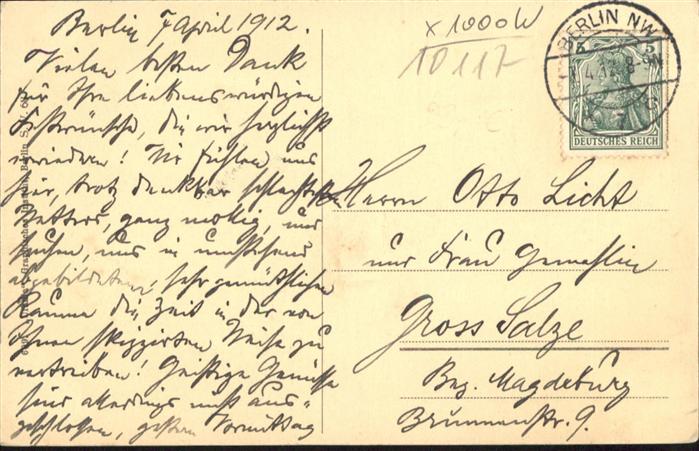 Berlin 7 April 1912.
Vielen besten Dank
für Ihre liebenswürdigen
Festwünsche, die wir herzlichst
erwiedern! Wir fühlen uns
hier, trotz denkbar schlechtesten
Wetters, ganz mollig, und
suchen, uns in umstehend
abgebildeten, sehr gemütlichen
Raume die Zeit in der von
Ihnen skizzirten Weise zu
vertreiben! Geistige Genüsse
sind allerdings nicht aus-
geschlossen, gestern Vormittag
x 1000 W
10117
BERLIN NW
5 5
DEUTSCHES REICH
Herrn Otto Licht
und Frau Gemahlin
Gross Salze
Bez. Magdeburg
Brunnenstr. 9.
Berlin S.W. 68